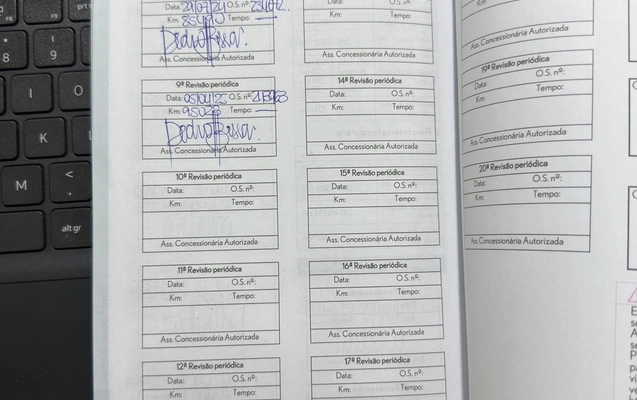 Data: O.S. nº:
Km: Tempo: —
Ass. Concessionária Autorizada
9ª Revisão periódica
Data: 05/04/25 O.S. nº:
Km: 95020 Tempo: —
Ass. Concessionária Autorizada
10ª Revisão periódica
Data: O.S. nº:
Km: Tempo:
Ass. Concessionária Autorizada
11ª Revisão periódica
Data: O.S. nº:
Km: Tempo:
Ass. Concessionária Autorizada
12ª Revisão periódica
Data: O.S. nº:
Km: Tempo:
Data: O.S. nº:
Km: Tempo:
Ass. Concessionária Autorizada
14ª Revisão periódica
Data: O.S. nº:
Km: Tempo:
Ass. Concessionária Autorizada
15ª Revisão periódica
Data: O.S. nº:
Km: Tempo:
Ass. Concessionária Autorizada
16ª Revisão periódica
Data: O.S. nº:
Km: Tempo:
Ass. Concessionária Autorizada
17ª Revisão periódica
Data: O.S. nº:
Km: Tempo:
Km:
Ass. Concessionária Autorizada
19ª Revisão periódica
Data: O.S. nº:
Km: Tempo:
Ass. Concessionária Autorizada
20ª Revisão periódica
Data: O.S. nº:
Km: Tempo:
Ass. Concessionária Autorizada
8
9
I
O
K
L
M
<
,
alt gr